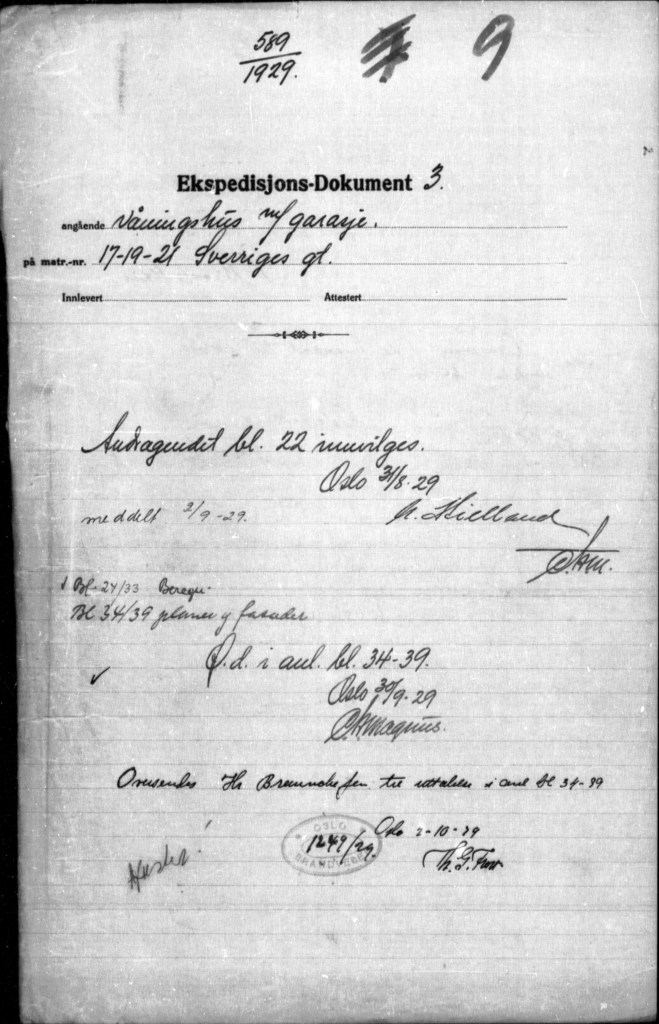 589
1929.
9
Ekspedisjons-Dokument 3.
angående Våningshus m/ garasje.
på matr.-nr. 17-19-21 Sverriges gt.
Innlevert Attestert
Andragendet bl. 22 innvilges.
Oslo 31/8-29
meddelt 2/9-29.
N. Kielland
Bl. 24/33 Beregn.
Bl 34/39 planer og fasader
Ø.d. i anl. bl. 34-39.
Oslo 30/9-29
Oversendes Hr Brannchefen til uttalelse i anl bl 34-39
Oslo 2-10-29
OSLO
1249/29.
BRANDVESEN
Haster!